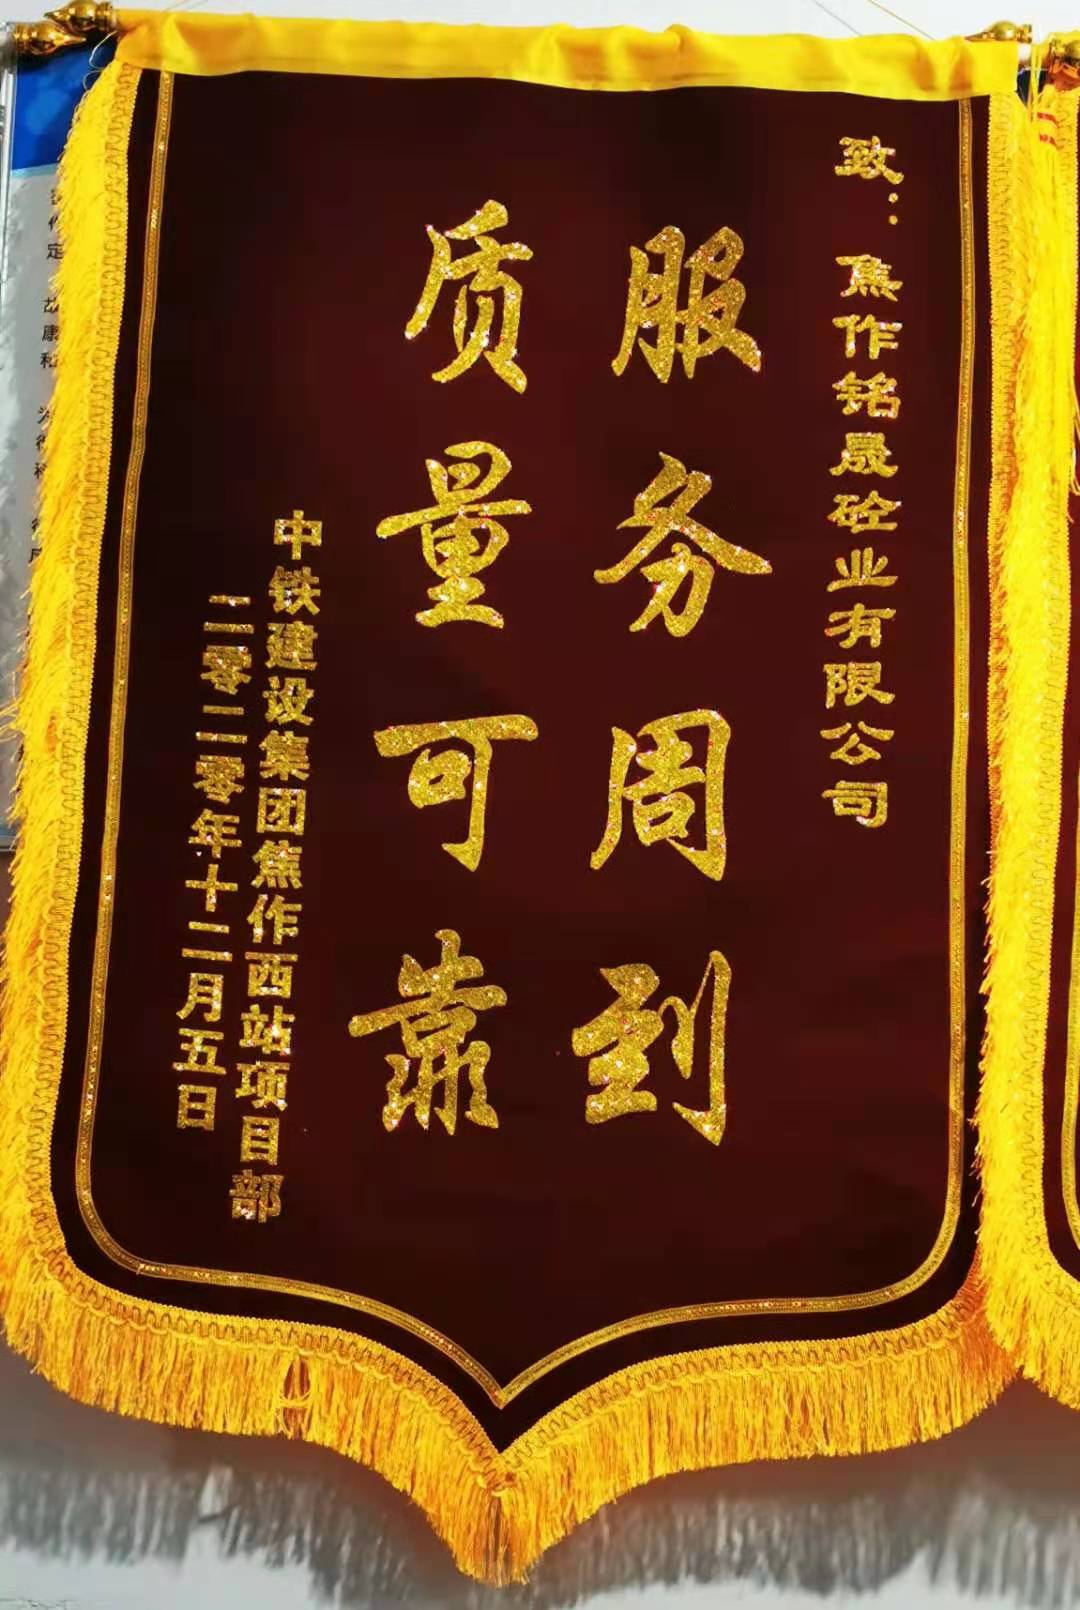 致：焦作铭晟砼业有限公司
服务周到
质量可靠
中铁建设集团焦作西站项目部
二零二零年十二月五日